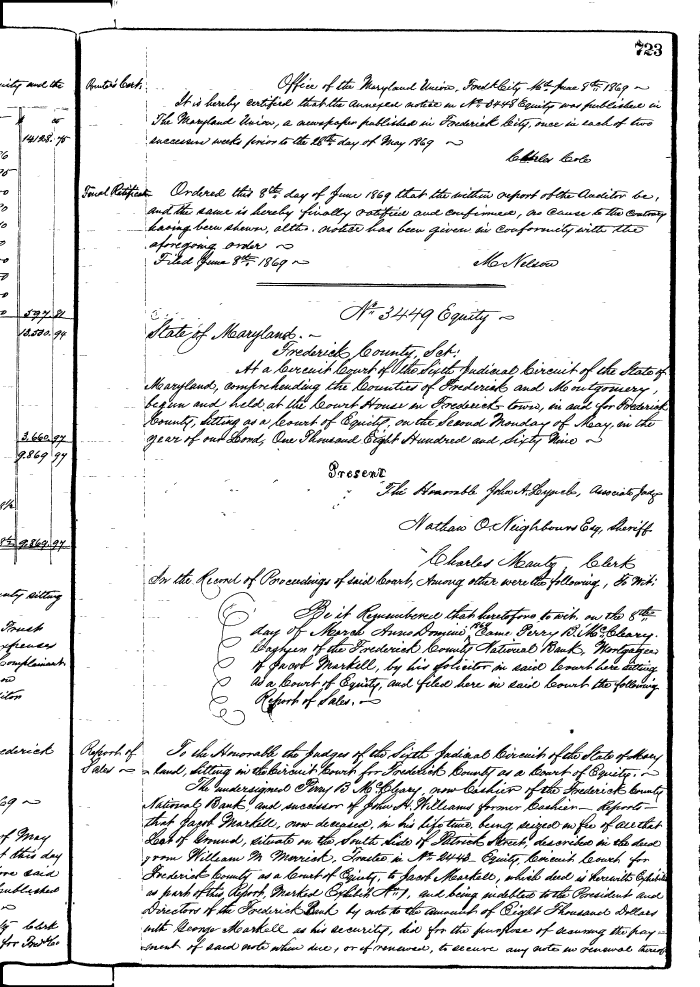 723
Office of the Maryland Union, Fredk City Md. June 8th 1869
It is hereby certified that the annexed notice in No. 3448 Equity was published in
The Maryland Union, a newspaper published in Frederick City, once in each of two
successive weeks prior to the 28th day of May 1869
Charles Cole
Final Ratification
Ordered this 8th day of June 1869 that the within report of the Auditor be,
and the same is hereby finally ratified and confirmed, no cause to the contrary
having been shewn, altho. notice has been given in conformity with the
aforegoing order
Filed June 8th 1869
M Nelson
No 3449 Equity
State of Maryland.
Frederick County, Sct:
At a Circuit Court of the Sixth Judicial Circuit of the State of
Maryland, comprehending the Counties of Frederick and Montgomery,
begun and held, at the Court House in Frederick town, in and for Frederick
County, sitting as a Court of Equity, on the Second Monday of May, in the
year of our Lord, One Thousand Eight Hundred and Sixty Nine
Present
The Honorable John A. Lynch, Associate Judge
Nathan O. Neighbours Esq, Sheriff
Charles Mantz, Clerk
In the Record of Proceedings of said Court, Among other were the following, To Wit:
Be it Remembered that heretofore to wit, on the 8th
day of March Anno Domini 1869 Came Perry B. McCleary.
Cashier of the Frederick County National Bank, Mortgagee
of Jacob Markell, by his solicitor in said Court here sitting
as a Court of Equity, and filed here in said Court the following
Report of Sales.
Report of
Sales
To the Honorable the Judges of the Sixth Judicial Circuit of the State of Mary
land, sitting in the Circuit Court for Frederick County as a Court of Equity.
The undersigned Perry B McCleary, now Cashier of the Frederick County
National Bank, and successor of John H. Williams former Cashier Reports
that Jacob Markell, now deceased, in his life time, being seized in fee of all that
Lot of Ground, situate on the South Side of Patrick Street, described in the deed
from William M. Merrick, Trustee in No 2443 Equity, Circuit Court for
Frederick County as a Court of Equity, to Jacob Markell, which deed is herewith Exhibited
as part of this Report, Marked Exhibit No 1, and being indebted to the President and
Directors of the Frederick Bank by note to the amount of Eight Thousand Dollars
with George Markell as his security, did for the purpose of securing the pay-
ment of said note when due, or if renewed, to secure any note in renewal thereof